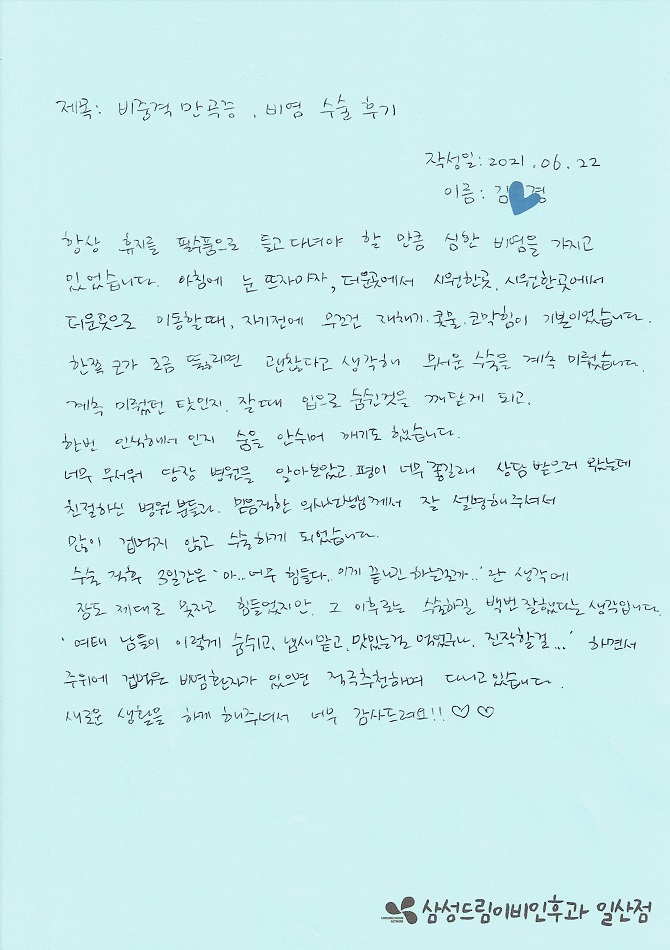 제목: 비중격 만곡증, 비염 수술 후기
작성일: 2021. 06. 22
이름: 김 경
항상 휴지를 필수품으로 들고 다녀야 할 만큼 심한 비염을 가지고
있었습니다. 아침에 눈 뜨자마자, 더운곳에서 시원한곳, 시원한곳에서
더운곳으로 이동할때, 자기전에 무조건 재채기. 콧물. 코막힘이 기본이었습니다.
한쪽 코가 조금 뚫리면 괜찮다고 생각해 무서운 수술을 계속 미뤘습니다.
계속 미뤘던 탓인지. 잘때 입으로 숨쉰것을 깨닫게 되고.
한번 인식해서 인지 숨을 안쉬어 깨기도 했습니다.
너무 무서워 당장 병원을 알아보았고. 평이 너무 좋길래 상담 받으러 왔는데
친절하신 병원 분들과. 믿음직한 의사선생님께서 잘 설명해주셔서
많이 겁먹지 않고 수술하게 되었습니다.
수술 직후 3일간은 '아.. 너무 힘들다.. 이게 끝나긴 하는걸까..' 란 생각에
잠도 제대로 못자고 힘들었지만. 그 이후로는 수술하길 백번 잘했다는 생각입니다.
'여태 남들이 이렇게 숨쉬고, 냄새 맡고, 맛있는걸 먹었구나. 진작할걸...' 하면서
주위에 겁먹은 비염환자가 있으면 적극추천하며 다니고있습니다.
새로운 생활을 하게 해주셔서 너무 감사드려요!! ♡ ♡
삼성드림이비인후과 일산점